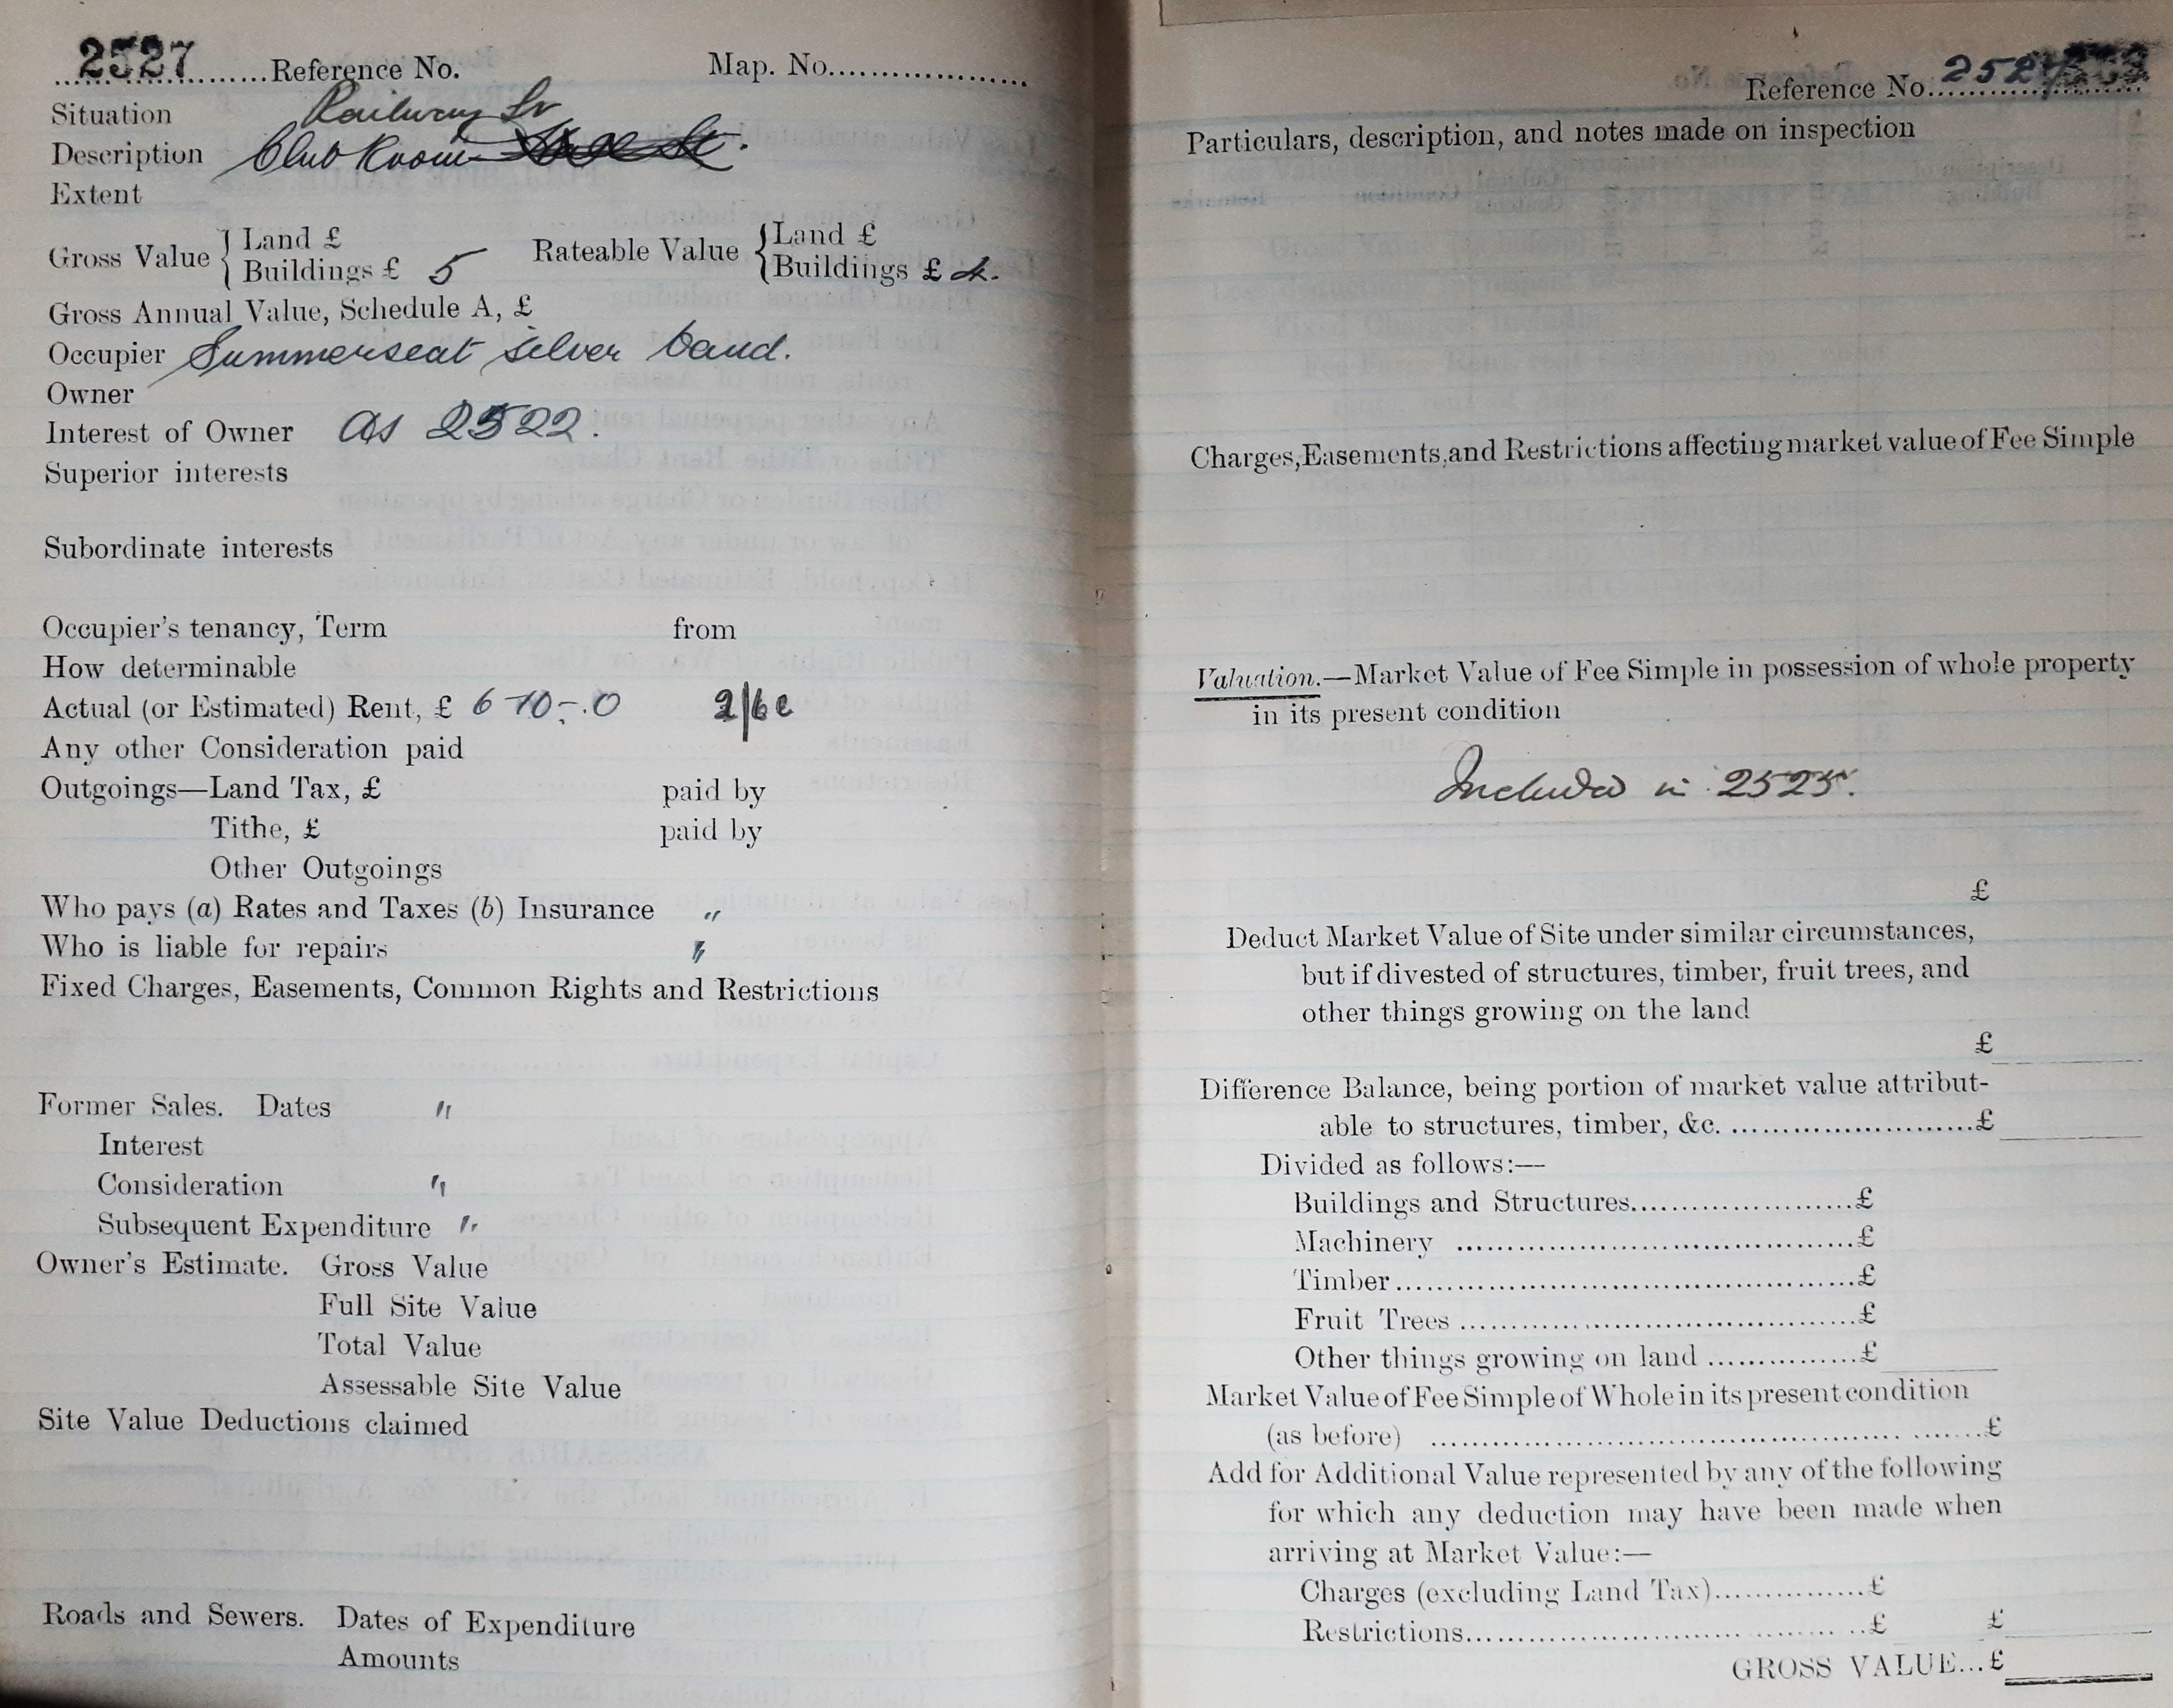 2527 Reference No. Map. No.
Situation Railway St
Description Club Room
Extent
Gross Value { Land £ Rateable Value { Land £
Buildings £ 5 Buildings £ 4.
Gross Annual Value, Schedule A, £
Occupier Summerseat silver band.
Owner
Interest of Owner as 2522.
Superior interests
Subordinate interests
Occupier's tenancy, Term from
How determinable
Actual (or Estimated) Rent, £ 6-10-.0 2/6
Any other Consideration paid
Outgoings—Land Tax, £ paid by
Tithe, £ paid by
Other Outgoings
Who pays (a) Rates and Taxes (b) Insurance "
Who is liable for repairs "
Fixed Charges, Easements, Common Rights and Restrictions
Former Sales. Dates "
Interest
Consideration "
Subsequent Expenditure "
Owner's Estimate. Gross Value
Full Site Value
Total Value
Assessable Site Value
Site Value Deductions claimed
Roads and Sewers. Dates of Expenditure
Amounts
Reference No. 2527
Particulars, description, and notes made on inspection
Charges, Easements, and Restrictions affecting market value of Fee Simple
Valuation.—Market Value of Fee Simple in possession of whole property
in its present condition
Included in 2525.
£
Deduct Market Value of Site under similar circumstances,
but if divested of structures, timber, fruit trees, and
other things growing on the land
£
Difference Balance, being portion of market value attribut-
able to structures, timber, &c. ........................£
Divided as follows:—
Buildings and Structures......................£
Machinery .......................................£
Timber.............................................£
Fruit Trees .......................................£
Other things growing on land ...............£
Market Value of Fee Simple of Whole in its present condition
(as before) .......................................................£
Add for Additional Value represented by any of the following
for which any deduction may have been made when
arriving at Market Value:—
Charges (excluding Land Tax)...............£
Restrictions.......................................£ £
GROSS VALUE...£